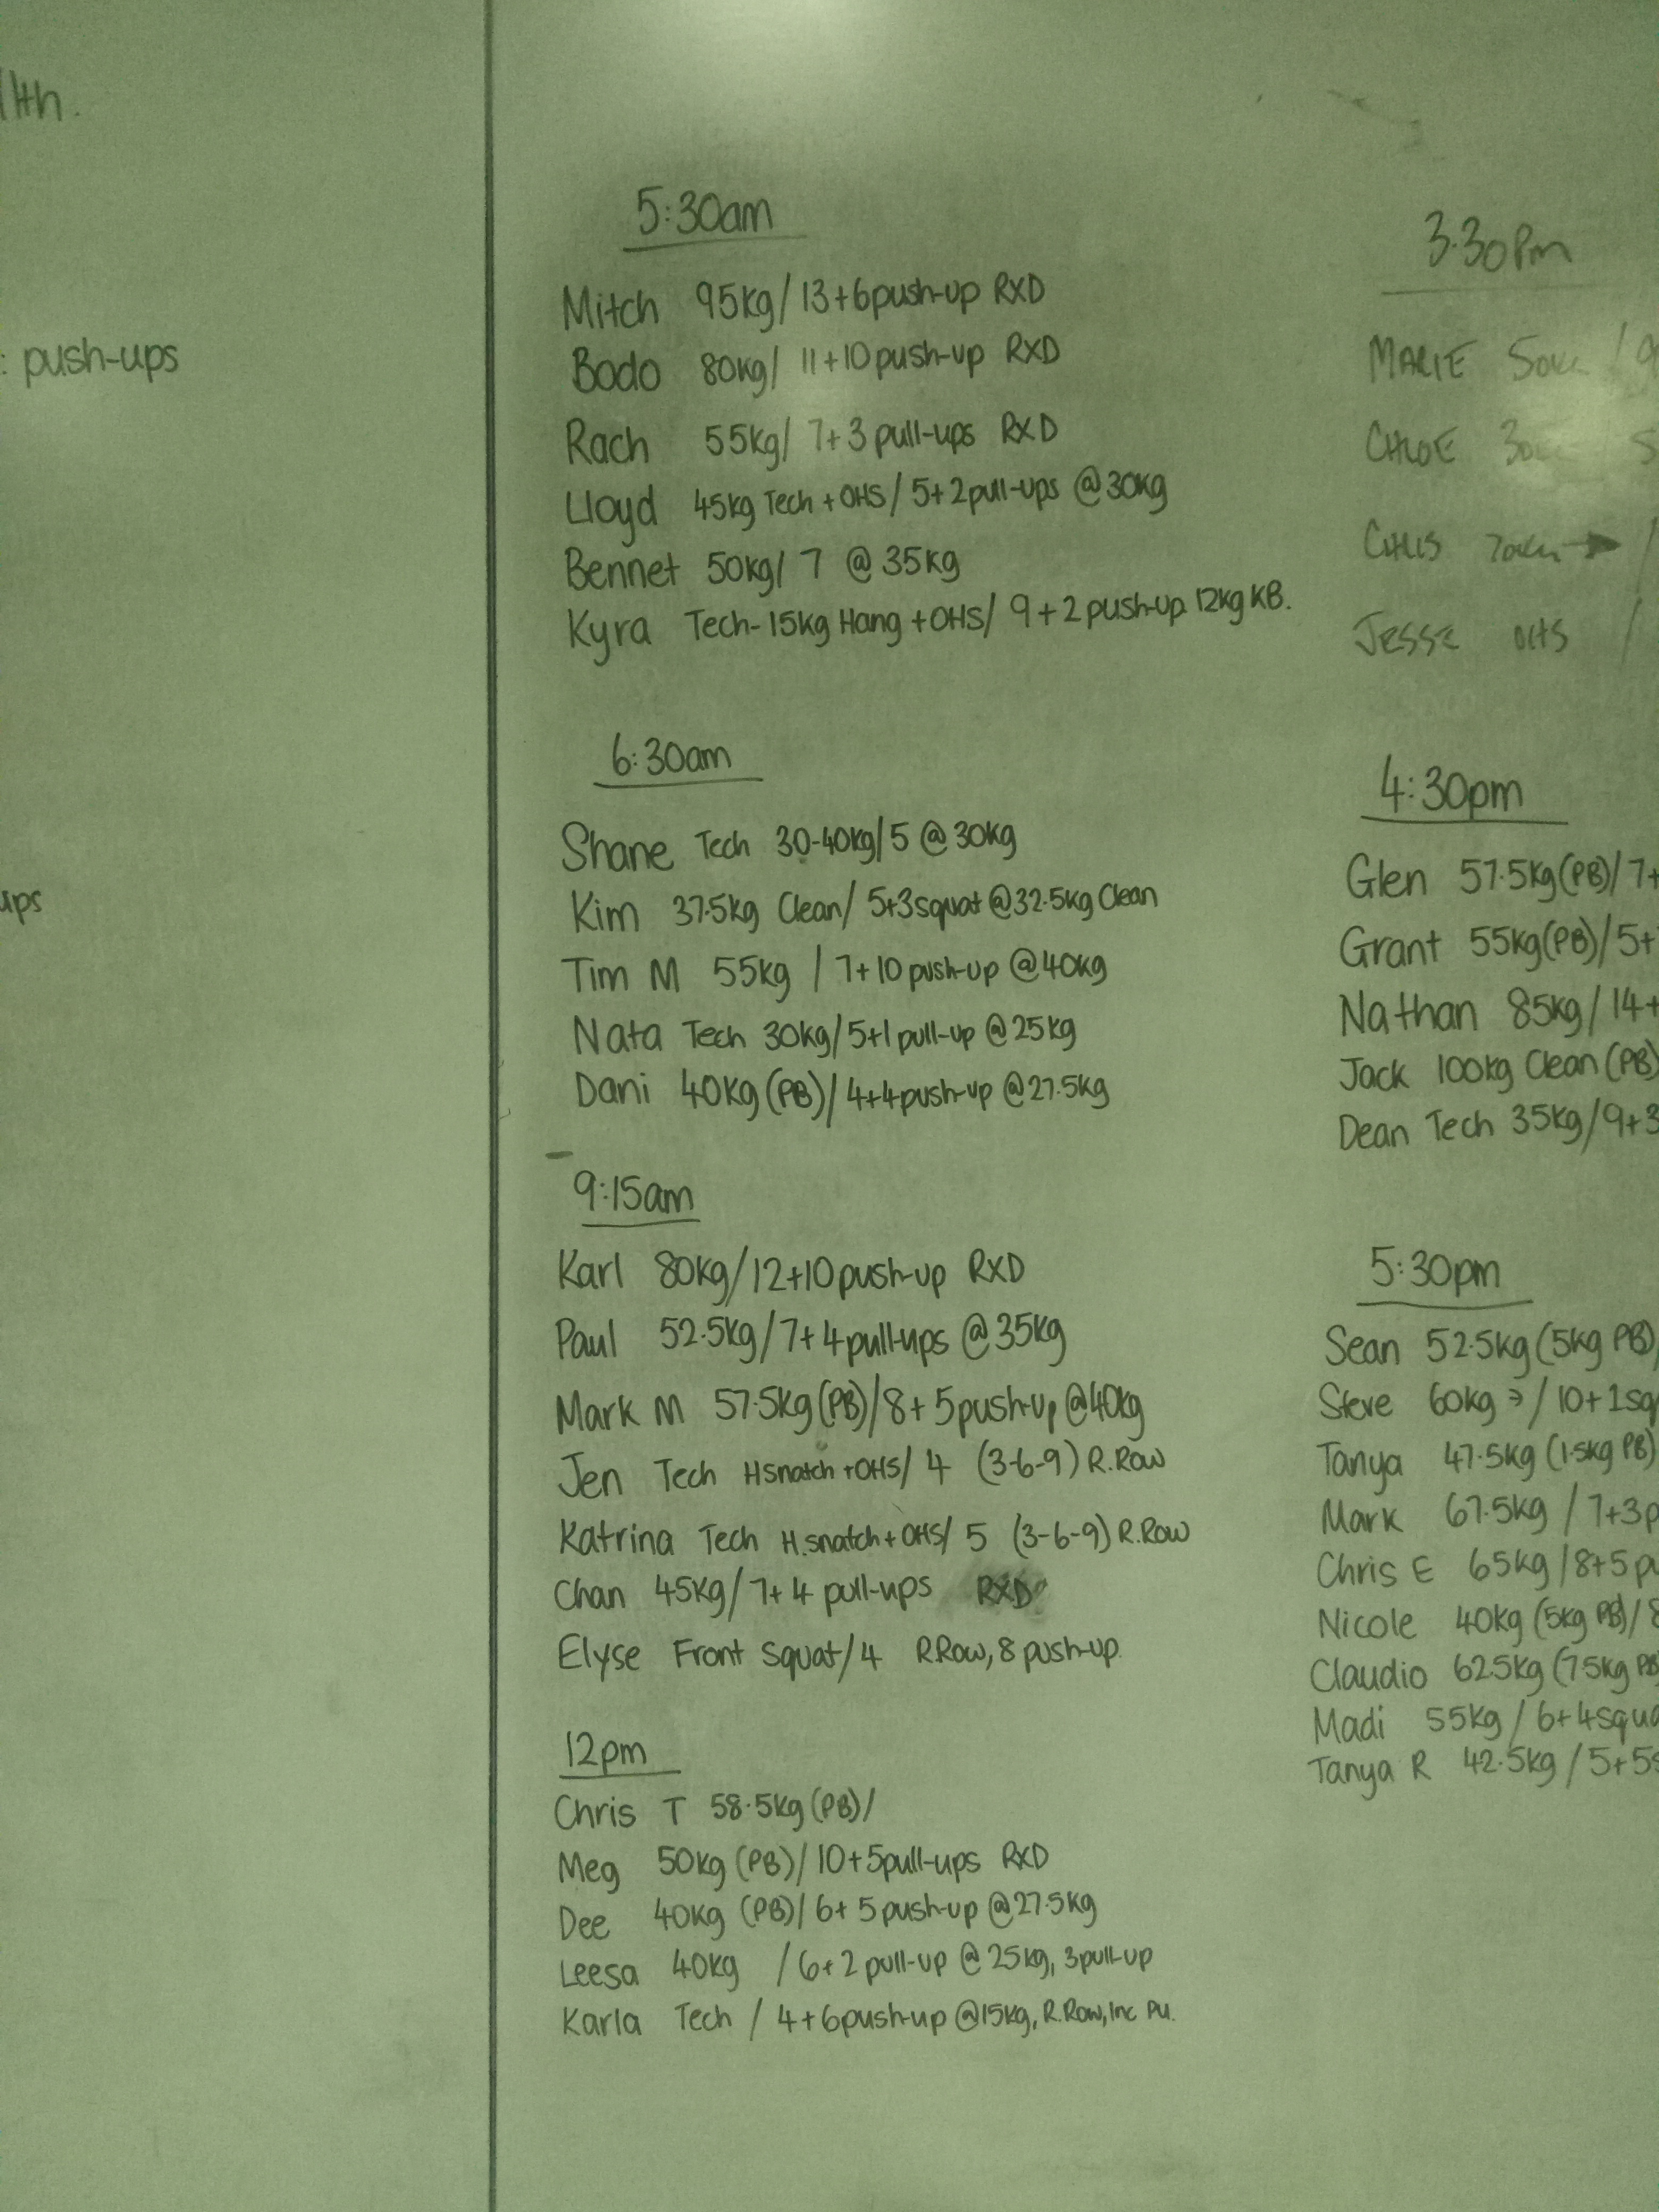 lth.
: push-ups
ups
5:30am
Mitch 95kg/ 13+6push-up RXD
Bodo 80kg/ 11+10push-up RXD
Rach 55kg/ 7+3 pull-ups RXD
Lloyd 45kg Tech + OHS/ 5+2pull-ups @30kg
Bennet 50kg/ 7 @ 35kg
Kyra Tech- 15kg Hang +OHS/ 9+2 push-up 12kg KB.
6:30am
Shane Tech 30-40kg/5 @30kg
Kim 37.5kg Clean/ 5+3squat @32.5kg Clean
Tim M 55kg / 7+10 push-up @40kg
Nata Tech 30kg/5+1 pull-up @25kg
Dani 40kg (PB)/ 4+4push-up @27.5kg
9:15am
Karl 80kg/12+10push-up RXD
Paul 52.5kg/7+4pull-ups @35kg
Mark M 57.5kg(PB)/8+5push-up @40kg
Jen Tech Hsnatch +OHS/ 4 (3-6-9) R.Row
Katrina Tech H.snatch+OHS/ 5 (3-6-9) R.Row
Chan 45kg/7+4 pull-ups RXD
Elyse Front Squat/4 R.Row, 8 push-up.
12pm
Chris T 58.5kg(PB)/
Meg 50kg (PB)/10+5pull-ups RXD
Dee 40kg (PB)/6+5push-up @27.5kg
Leesa 40kg /6+2 pull-up @ 25kg, 3pull-up
Karla Tech / 4+6push-up @15kg, R.Row, Inc PU.
3.30Pm
MARIE 50KG / 9
CHLOE 5
70KG /
JESSE OHS /
4:30pm
Glen 57.5kg(PB)/7+
Grant 55kg(PB)/5+
Nathan 85kg/14+
Jack 100kg Clean (PB)
Dean Tech 35kg/9+3
5:30pm
Sean 52.5kg(5kg PB)
Steve 60kg / 10+1sq
Tanya 47.5kg (1.5kg PB)
Mark 67.5kg / 7+3p
Chris E 65kg/8+5 pu
Nicole 40kg (5kg PB)/8
Claudio 62.5kg (7.5kg PB
Madi 55kg / 6+4squa
Tanya R 42.5kg / 5+5s